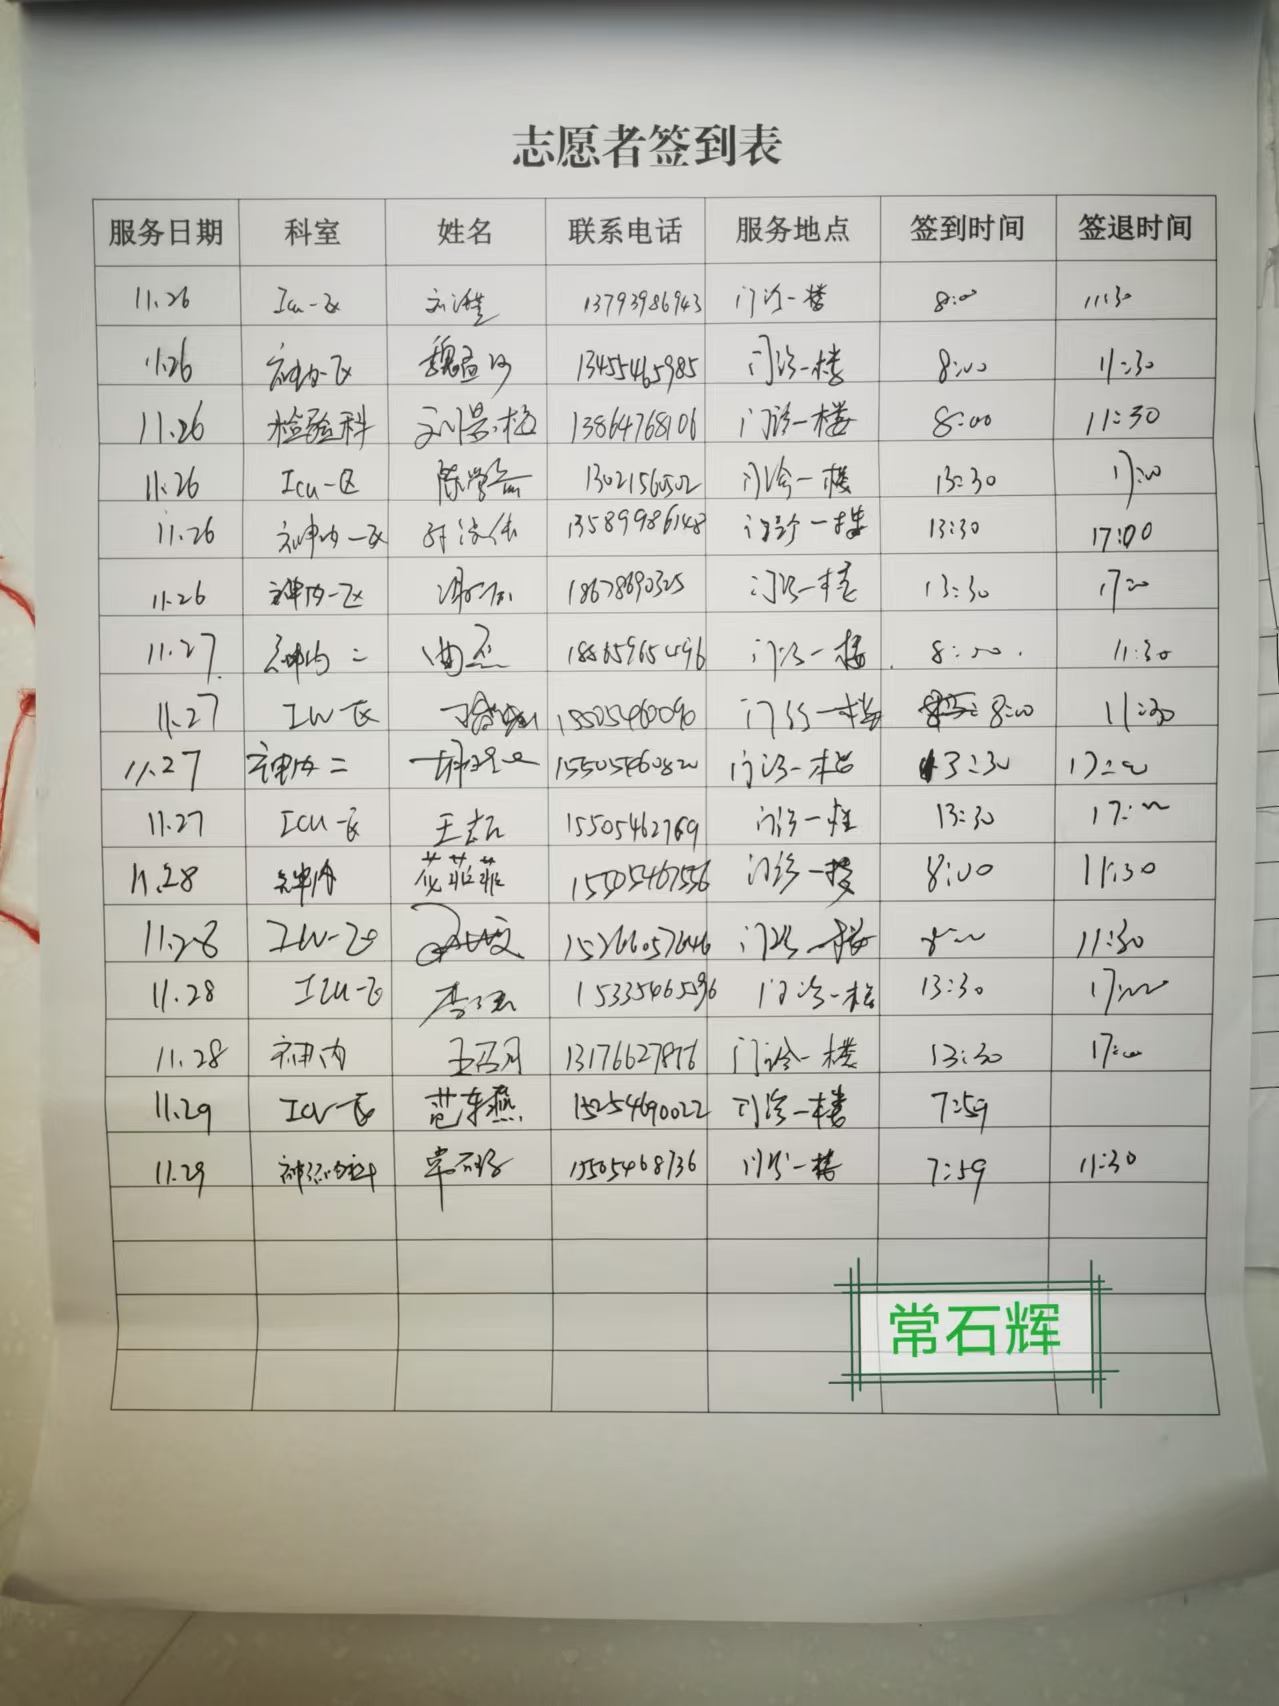 志愿者签到表
服务日期 科室 姓名 联系电话 服务地点 签到时间 签退时间
11.26 Icu一区 13793986943 门诊一楼 8:00 11:30
11.26 神内一区 13455465985 门诊一楼 8:00 11:30
11.26 检验科 刘景梅 13864768106 门诊一楼 8:00 11:30
11.26 Icu一区 门诊一楼 13:30 17:00
11.26 神内一区 13589986148 门诊一楼 13:30 17:00
11.26 神内一区 18678690325 门诊一楼 13:30 17:00
11.27 神内二 门诊一楼 8:00 11:30
11.27 ICU一区 15505460090 门诊一楼 8:00 11:30
11.27 神内二 15505460820 门诊一楼 13:30 17:00
11.27 ICU一区 15505462769 门诊一楼 13:30 17:00
11.28 神内 花菲菲 15505467556 门诊一楼 8:00 11:30
11.28 ICU一区 15266057646 门诊一楼 8:00 11:30
11.28 ICU一区 15335465596 门诊一楼 13:30 17:00
11.28 神内 13176627876 门诊一楼 13:30 17:00
11.29 ICU一区 15254690022 门诊一楼 7:59
11.29 神经内科 15505468736 门诊一楼 7:59 11:30
常石辉